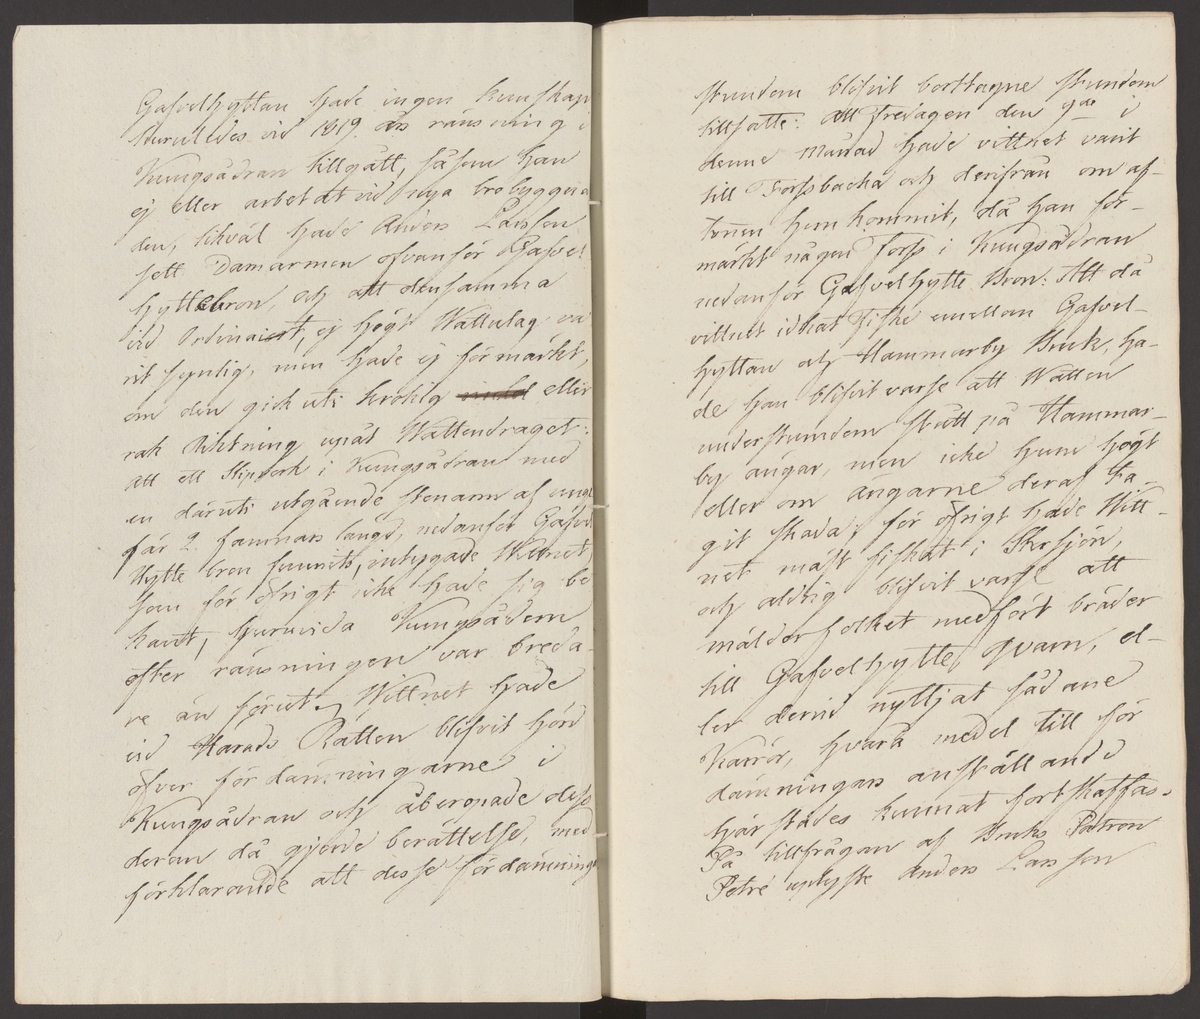 Gafvelhyttan hade ingen kunskap
huruledes vid 1819 års ränsning i
Kungsådran tillgått, såsom han
ej eller arbetat vid nya brobyggna
den, likväl hade Anders Larsson
sett Damarmen ofvanför Gafvel
hyttebron, och att densamma
vid Ordinairt, ej högt Wattulag va
rit synlig, men hade ej förmärkt,
om den gick uti krokig eller
rak Riktning uppåt Wattendraget:
att ett Skip i Kungsådran med
en däruti utgående stenarm af unge
fär 2 famnars längd, nedanför Gafvel
hytte bron funnits, intygade Wittnet,
som för öfrigt icke hade sig be
kant, huruvida Kungsådern
efter ränsningen var breda-
re än förut. Wittnet hade
vid Härads Rätten blifvit hörd
öfver fördämningarne i
Kungsådran och åberopade dess
deran då gjorde berättelse, med
förklarande att desse fördämninga
stundom blifvit borttagne stundom
tillsatte: att Fredagen den 9de i
denne Månad hade vittnet varit
till Forssbacka och derifrån om af-
tonen hemkommit, då han för-
märkt någon Forss i Kungsådran
nedanför Gafvelhytte Bron: Att då
vittnet idkat Fiske emellan Gafvel-
hyttan och Hammarby Bruk, ha-
de han blifvit varse att Watten
understundom stått på Hammar-
by ängar, men icke huru högt
eller om ängarne deraf ta-
git skada; för öfrigt hade Witt-
net mäst fiskat i Storsjön,
och aldrig blifvit varse att
mälderfolket medfört bräder
till Gafvelhytte qvarn, el-
ler dervid nyttjat sådane
Kärror, hvarå medel till för
dämningars anställande
härstädes kunnat fortskaffas.
På tillfrågan af Bruks Patron
Petré uplyste Anders Larsson